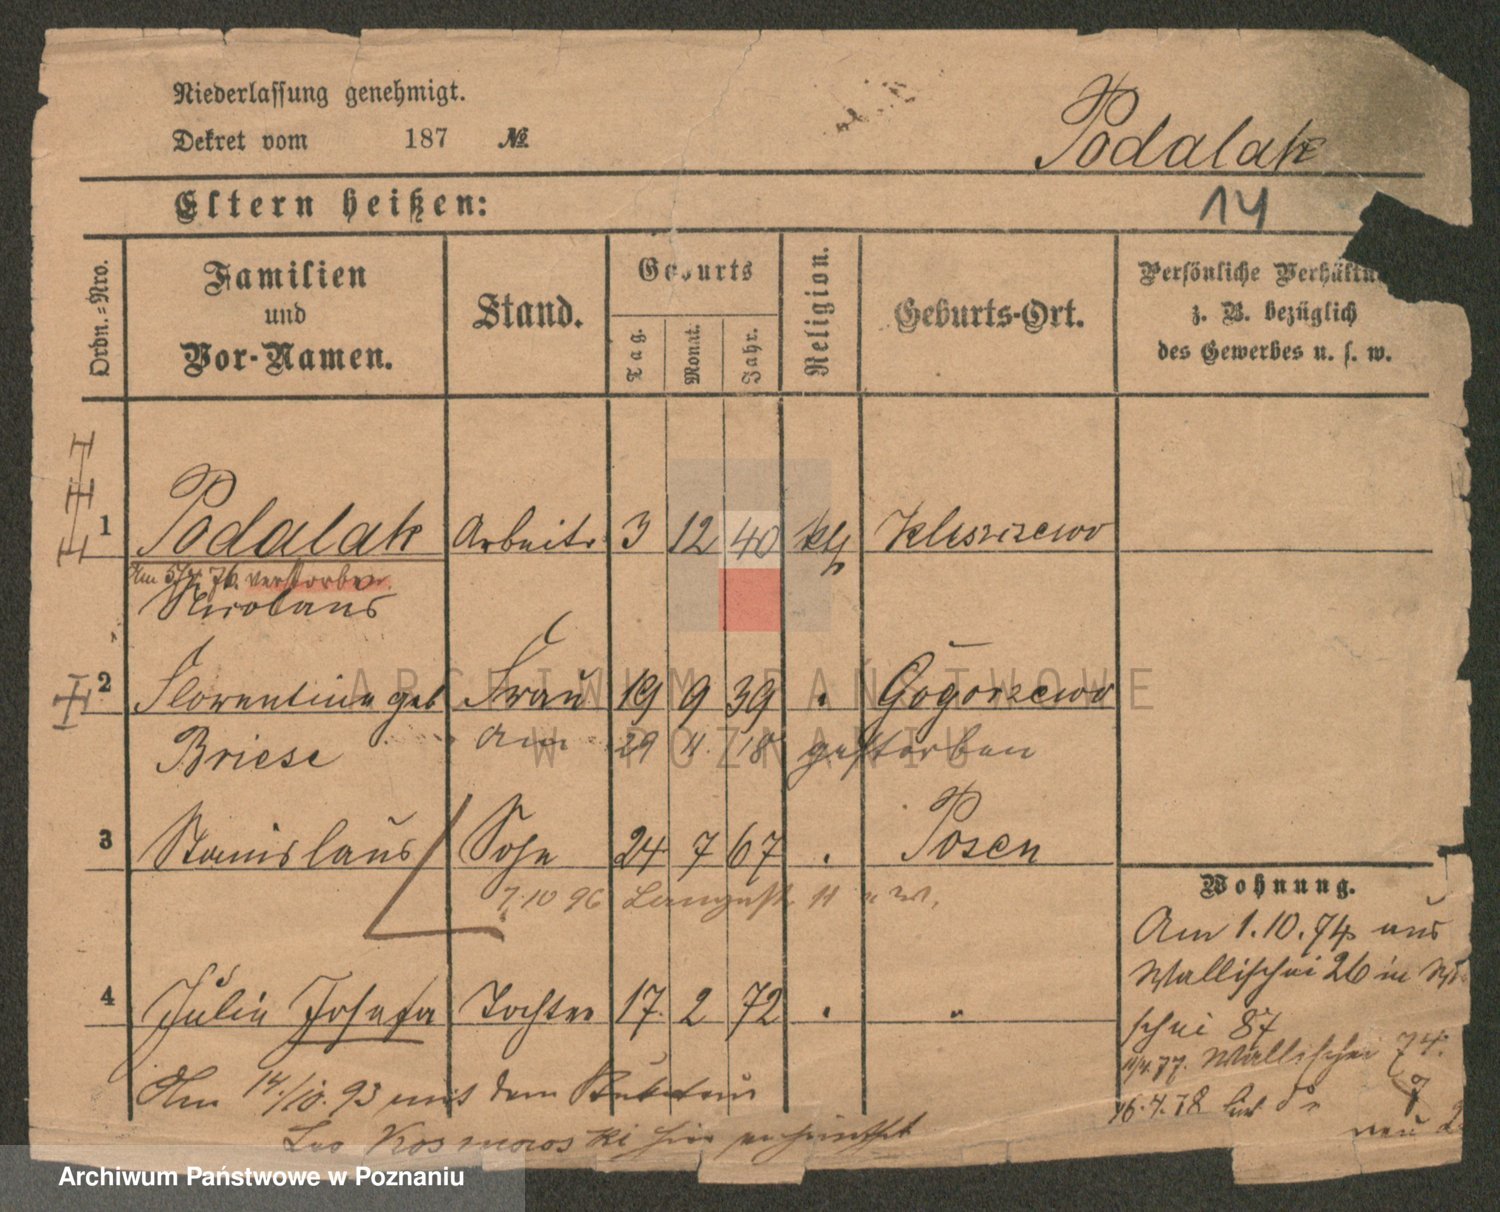 Niederlassung genehmigt.
Podalak
Dekret vom 187 №
Eltern heißen:
14
Ordn.-Nro.
Familien
und
Vor-Namen.
Stand.
Geburts
Tag.
Monat.
Jahr.
Religion.
Geburts-Ort.
Persönliche Verhältn
z. B. bezüglich
des Gewerbes u. s. w.
1 Podalak Arbeitr 3 12 40 kth Kluszczewo
Am 5/4 76. verstorben.
Nicolaus
2 Florentine geb Frau 19 9 39 " Gogorzewo
Briese Am 29 11. 18 gestorben
3 Stanislaus Sohn 24 7 67 " Posen
7.10 96
4 Julie Josefa Tochter 17. 2 72 " "
Am 14./10. 93 mit dem
Leo hier
Wohnung.
Am 1.10.74 aus
Wallischei 26 in W
schei 87
77. Wallischei 74.
16.7.78
neu
ARCHIWUM PAŃSTWOWE
W POZNANIU
Archiwum Państwowe w Poznaniu